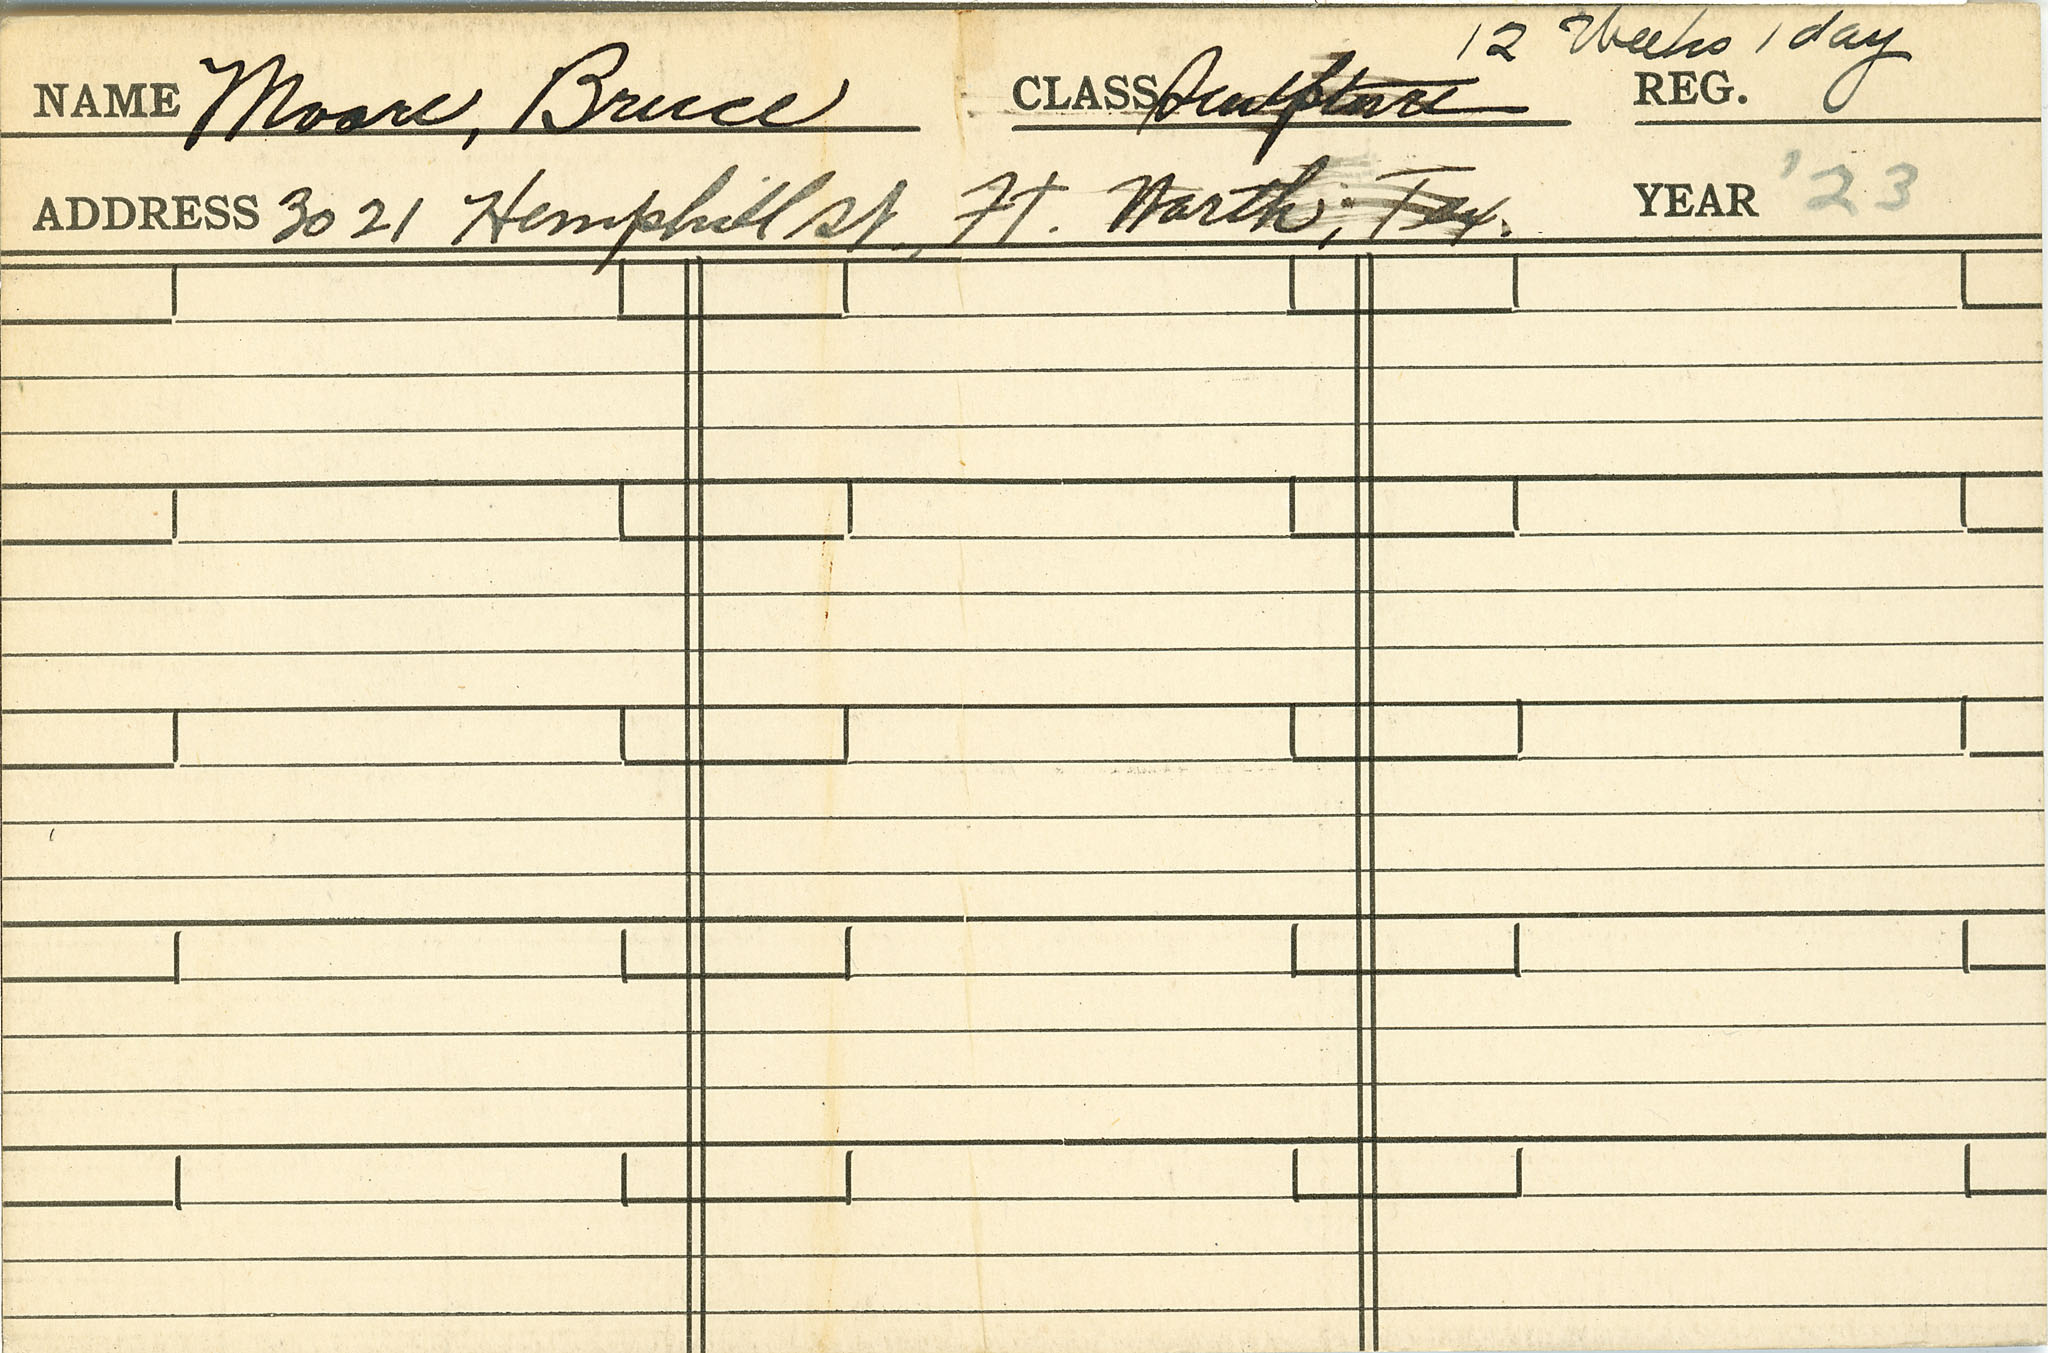 12 Weeks 1 day
NAME Moore, Bruce CLASS Sculpture REG.
ADDRESS 3021 Hemphill St, Ft. Worth, Tex. YEAR '23